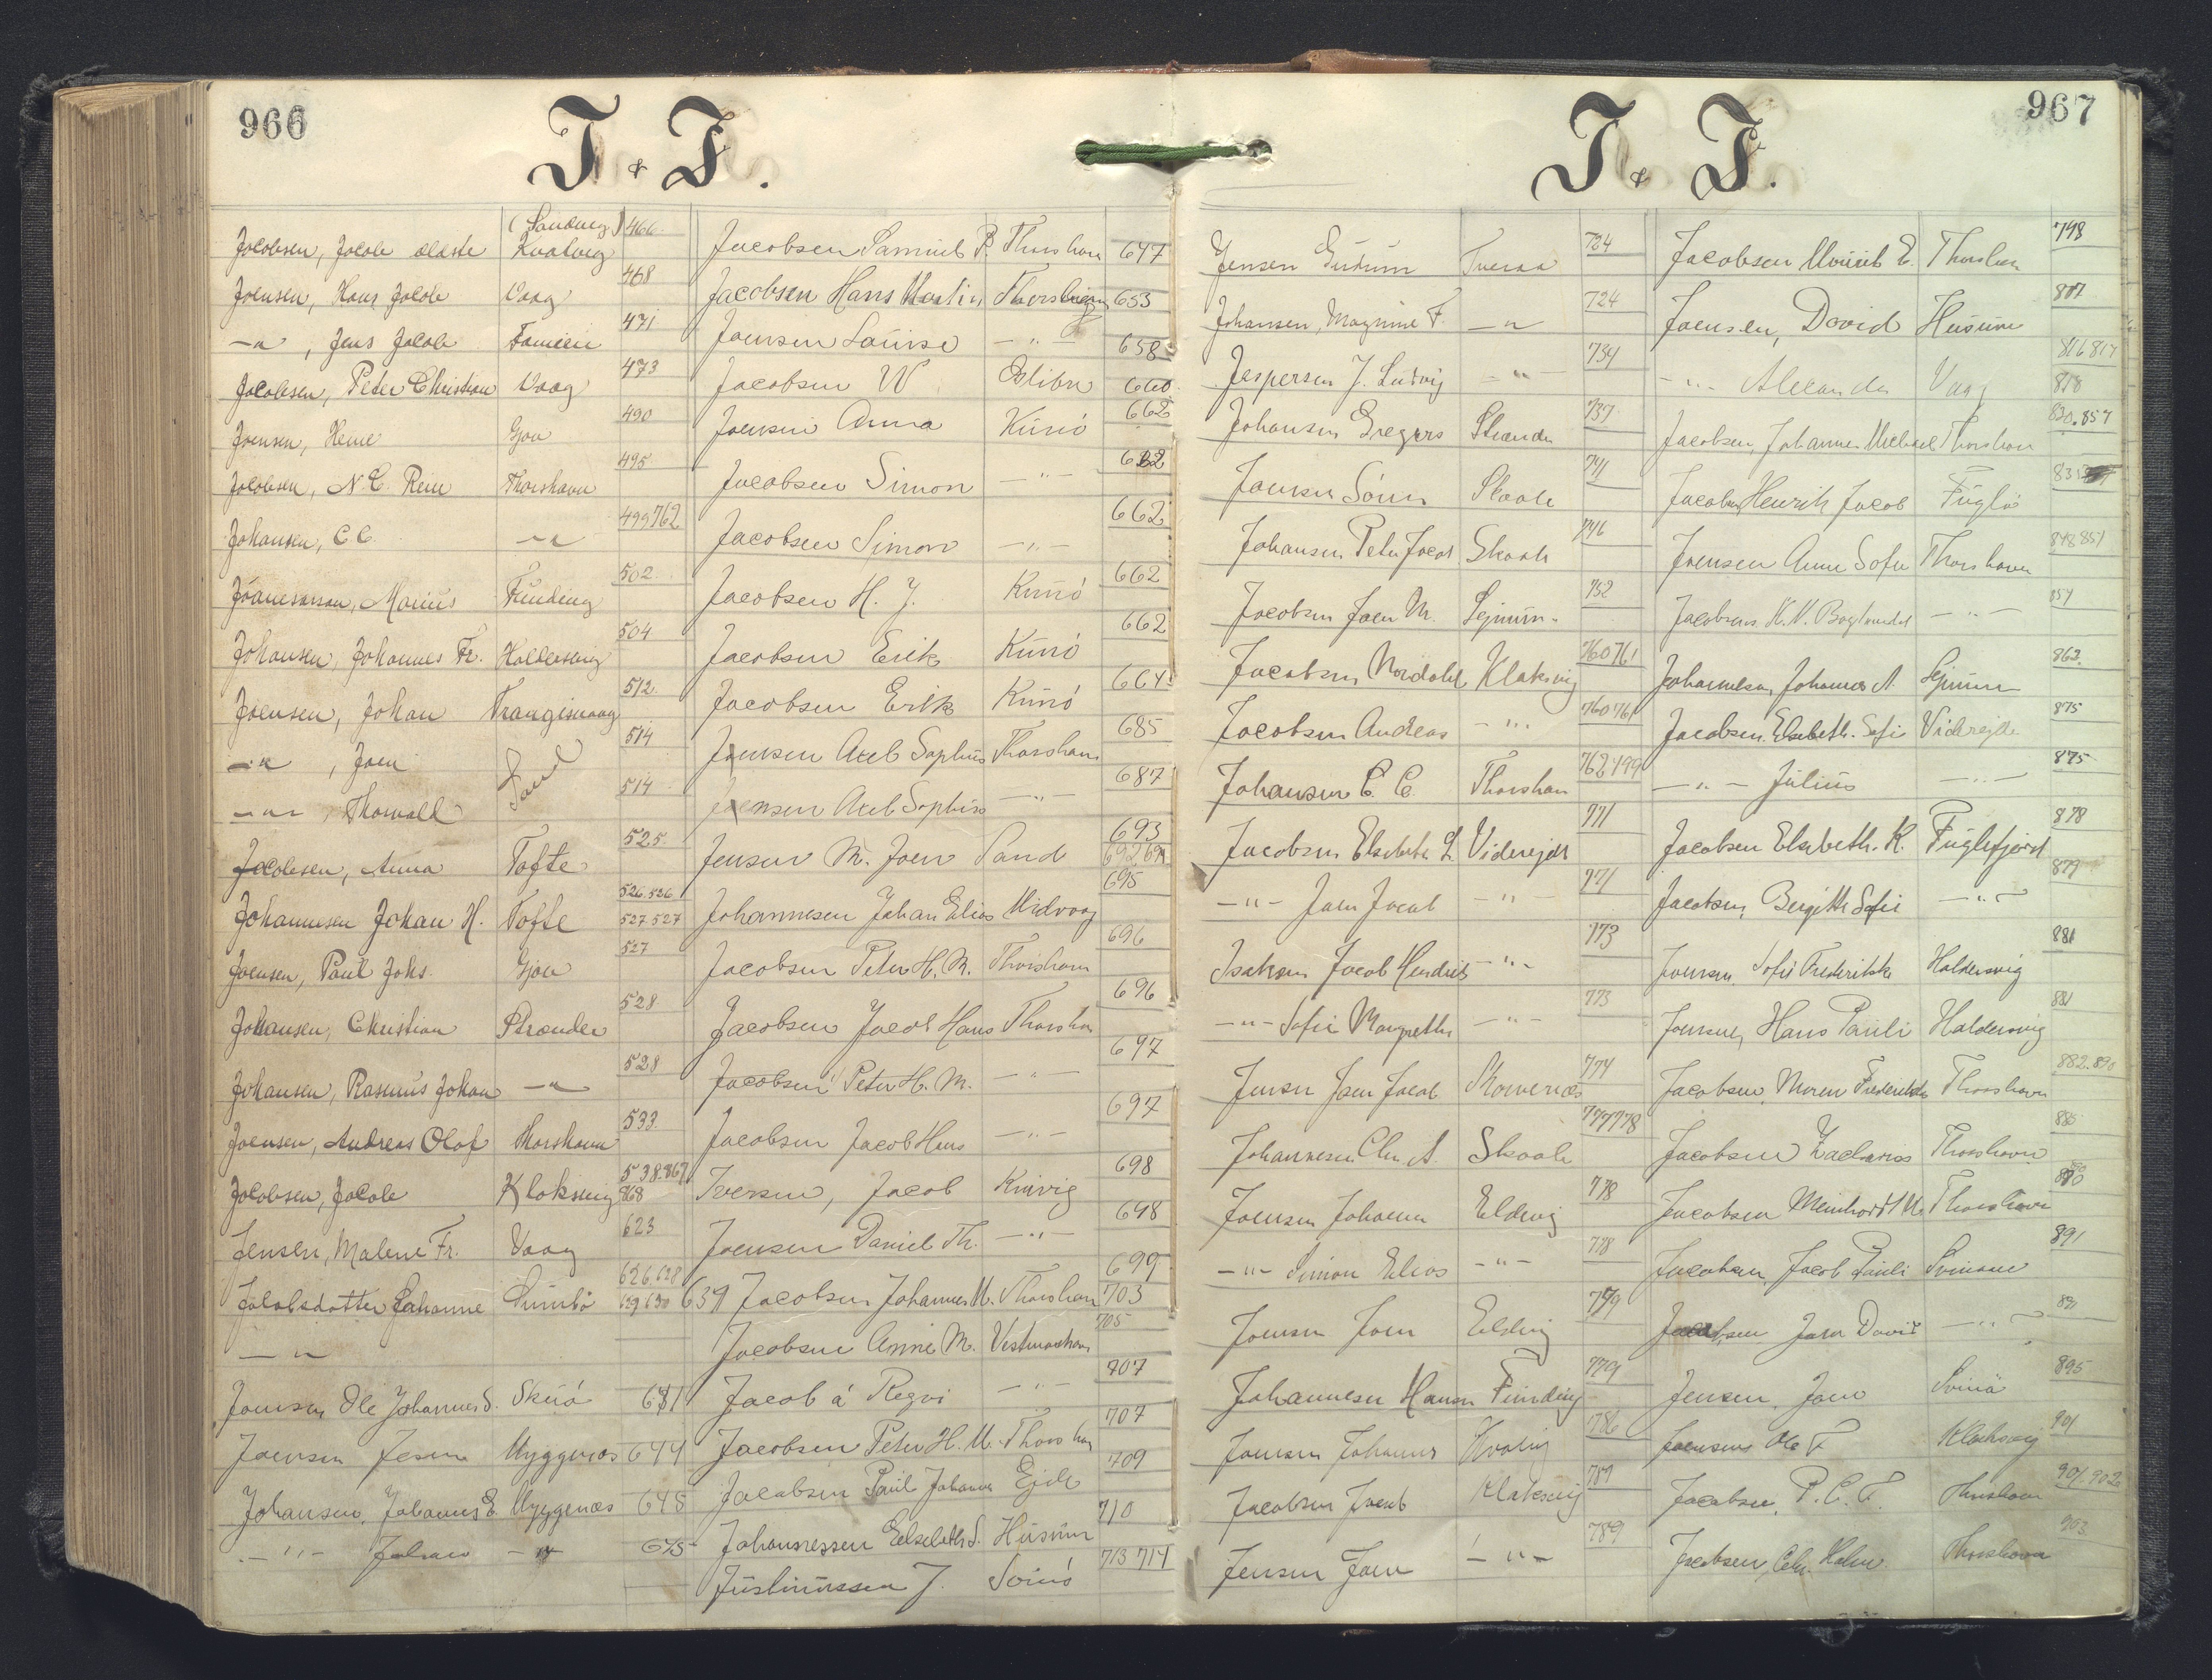 966
J & J.
Jacobsen, Jacob ældste (Sandvig) Kvalvig 466
Joensen, Hans Jacob Vaag 468
—"— , Jens Jacob Famien 471
Jacobsen, Peter Christian Vaag 473
Joensen, Heine Gjov 490
Jacobsen, N. C. Rein Thorshavn 495
Johansen, C C. —"— 499 762
Joanesarson, Marius Funding 502
Johansen, Johannes Fr. Haldersvig 504
Joensen, Johan Trangisvaag 512
—"— , Joen Sand 514
—"— , Thorvald 514
Jacobsen, Anna Tofte 525
Johannesen Johan H. Tofte 526.526 527 527
Joensen, Paul Johs. Gjov 527
Johansen, Christian Strander 528
Johansen, Rasmus Johan —"— 528
Joensen, Andreas Olaf Thorshavn 533
Jacobsen, Jacob Klaksvig 538.867 868
Jensen, Malene Fr. Vaag 623
Jacobsdatter Johanne Sumbö 626.628 629 630 639
—"—
Joensen Ole Johannes S. Skúö 631
Joensen Jesper Myggenæs 644
Johansen, Johannes E. Myggenæs 645
—"— Johan —"— 645
Jacobsen Samuel P. Thorshavn 647
Jacobsen Hans Martin Thorshavn 653
Joensen Louise —"— 658
Jacobsen W Østibu 660
Joensen Anna Kunö 662
Jacobsen Simon —"— 662
Jacobsen Simon —"— 662
Jacobsen H. J. Kunö 662
Jacobsen Erik Kunö 662
Jacobsen Erik Kunö 664
Joensen Axel Sophus Thorshavn 685
Joensen Axel Sophus —"— 687
Jensen M. Joen Sand 693 692 694
Johannesen Johan Elias Midvaag 695
Jacobsen Peter H. M. Thorshavn 696
Jacobsen Jacob Hans Thorshavn 696
Jacobsen Peter H. M. —"— 697
Jacobsen Jacob Hans —"— 697
Iversen, Jacob Kvivig 698
Joensen Daniel Th. —"— 648
699
Jacobsen Johannes M. Thorshavn 703
Jacobsen Anne M. Vestmanhavn 705
Jacob á Regvi —"— 707
Jacobsen Peter H. M. Thorshavn 707
Jacobsen Paul Johannes Ejde 709
Johannessen Elsebeth S. Husum 710
Justinussen J. Svinö 713 714
967
J & J.
Jensen Gudrun Tveraa 724
Johansen, Magnine F. —"— 724
Jespersen J. Ludvig —"— 734
Johansen Gregers Strander 737
Joensen Sörin Skaale 741
Johansen Peter Jacob Skaale 746
Jacobsen Joen M. Lejnum 752
Jacobsen Nordahl Klaksvig 760 761
Jacobsen Andreas —"— 760 761
Johansen C. C. Thorshavn 762 499
Jacobsen Elsebeth L. Viderejde 771
—"— Joen Jacob —"— 771
Isaksen Jacob Hendrik —"— 773
—"— Sofie Margrethe —"— 773
Jensen Joen Jacob Morvenæs 774
Johannesen Chr. A. Skaale 777 778
Joensen Johanna Eldevig 778
—"— Simon Elias —"— 778
Joensen Joen Eldvig 779
Johannesen Hans Funding 779
Joensen Johannes Kvalvig 786
Jacobsen Jacob Klaksvig 787
Jensen Joen —"— 789
Jacobsen Mourits E. Thorshavn 798
Joensen, David Husum 807
—"— Alexander Vaag 816 817 818
Jacobsen, Johannes Michael Thorshavn 830.857
Jacobsen Henrik Jacob Fuglö 833
Joensen Anna Sofie Thorshavn 848 851
Jacobsens H. N. Boghandel —"— 857
Johannesen, Johannes A. Lejnum 863
Jacobsen Elsebeth Sofie Viderejde 875
—"— Julius —"— 875
Jacobsen Elsebeth K. Fuglefjord 878
Jacobsen, Birgitte Sofie —"— 879
Joensen, Sofie Frederikke Haldersvig 881
Joensen, Hans Pauli Haldersvig 881
Jacobsen, Maren Frederikke Thorshavn 882.890
Jacobsen Zacharias Thorshavn 885
Jacobsen Meinhardt M. Thorshavn 890
Jacobsen, Jacob Pauli Svinaa 891
Jacobsen Joen David —"— 891
Jensen, Joen Svinö 895
Joensen Ole F. Klaksvig 901
Jacobsen, P. C. F. Thorshavn 901.902
Jacobsen, Chr. Holm Thorshavn 903